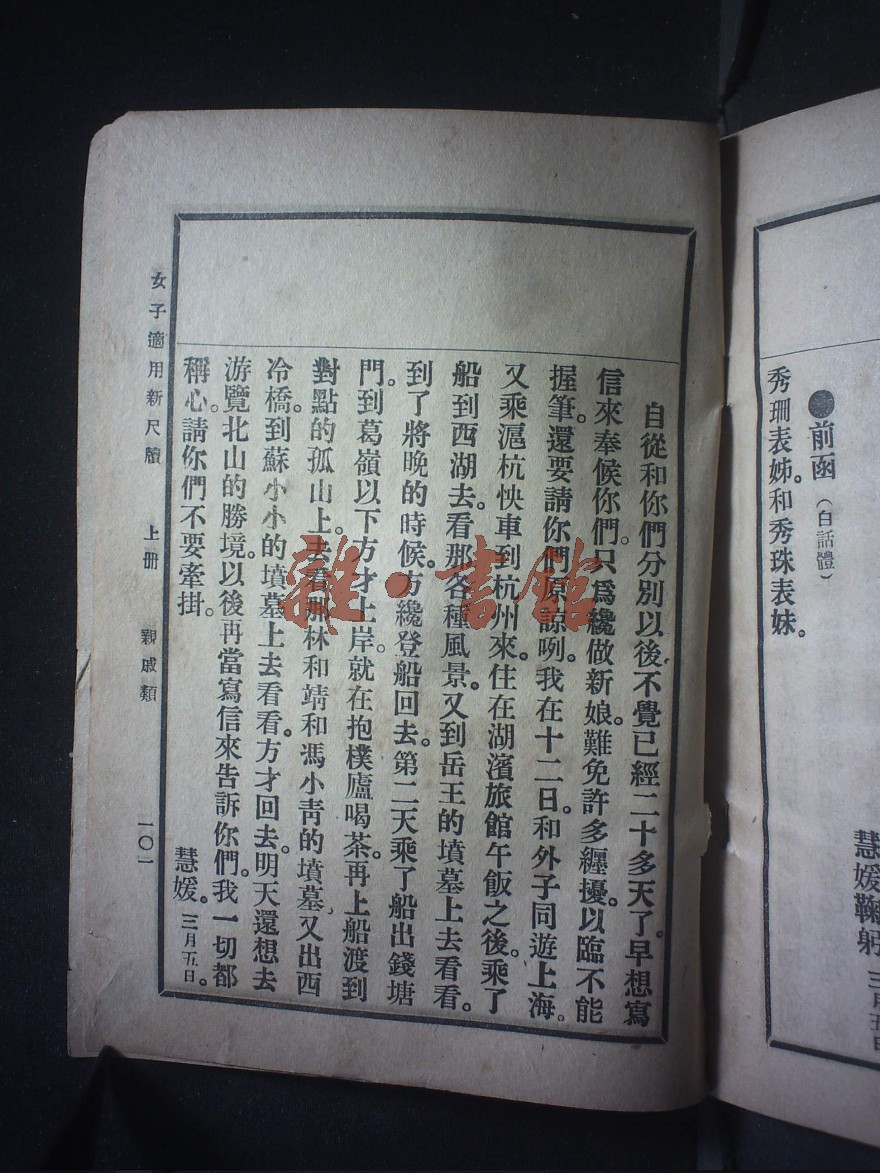 慧媛鞠躬 三月五日
●前函（白話體）
秀珊表姊。和秀珠表妹。
自從和你們分別以後不覺已經二十多天了。早想寫
信來奉候你們。只爲纔做新娘。難免許多纏擾。以臨不能
握筆。還要請你們原諒咧。我在十二日。和外子同遊上海。
又乘滬杭快車到杭州來。住在湖濱旅館午飯之後。乘了
船到西湖去。看那各種風景。又到岳王的墳墓上去看看。
到了將晚的時候。方纔登船回去。第二天乘了船出錢塘
門。到葛嶺以下方才上岸。就在抱樸廬喝茶。再上船渡到
對點的孤山上。去看那林和靖和馮小靑的墳墓。又出西
冷橋。到蘇小小的墳墓上去看看。方才回去。明天還想去
游覽北山的勝境。以後再當寫信來告訴你們。我一切都
稱心。請你們不要牽掛。
慧媛。三月五日。
女子適用新尺牘 上册 親戚類 一〇一
雜·書館